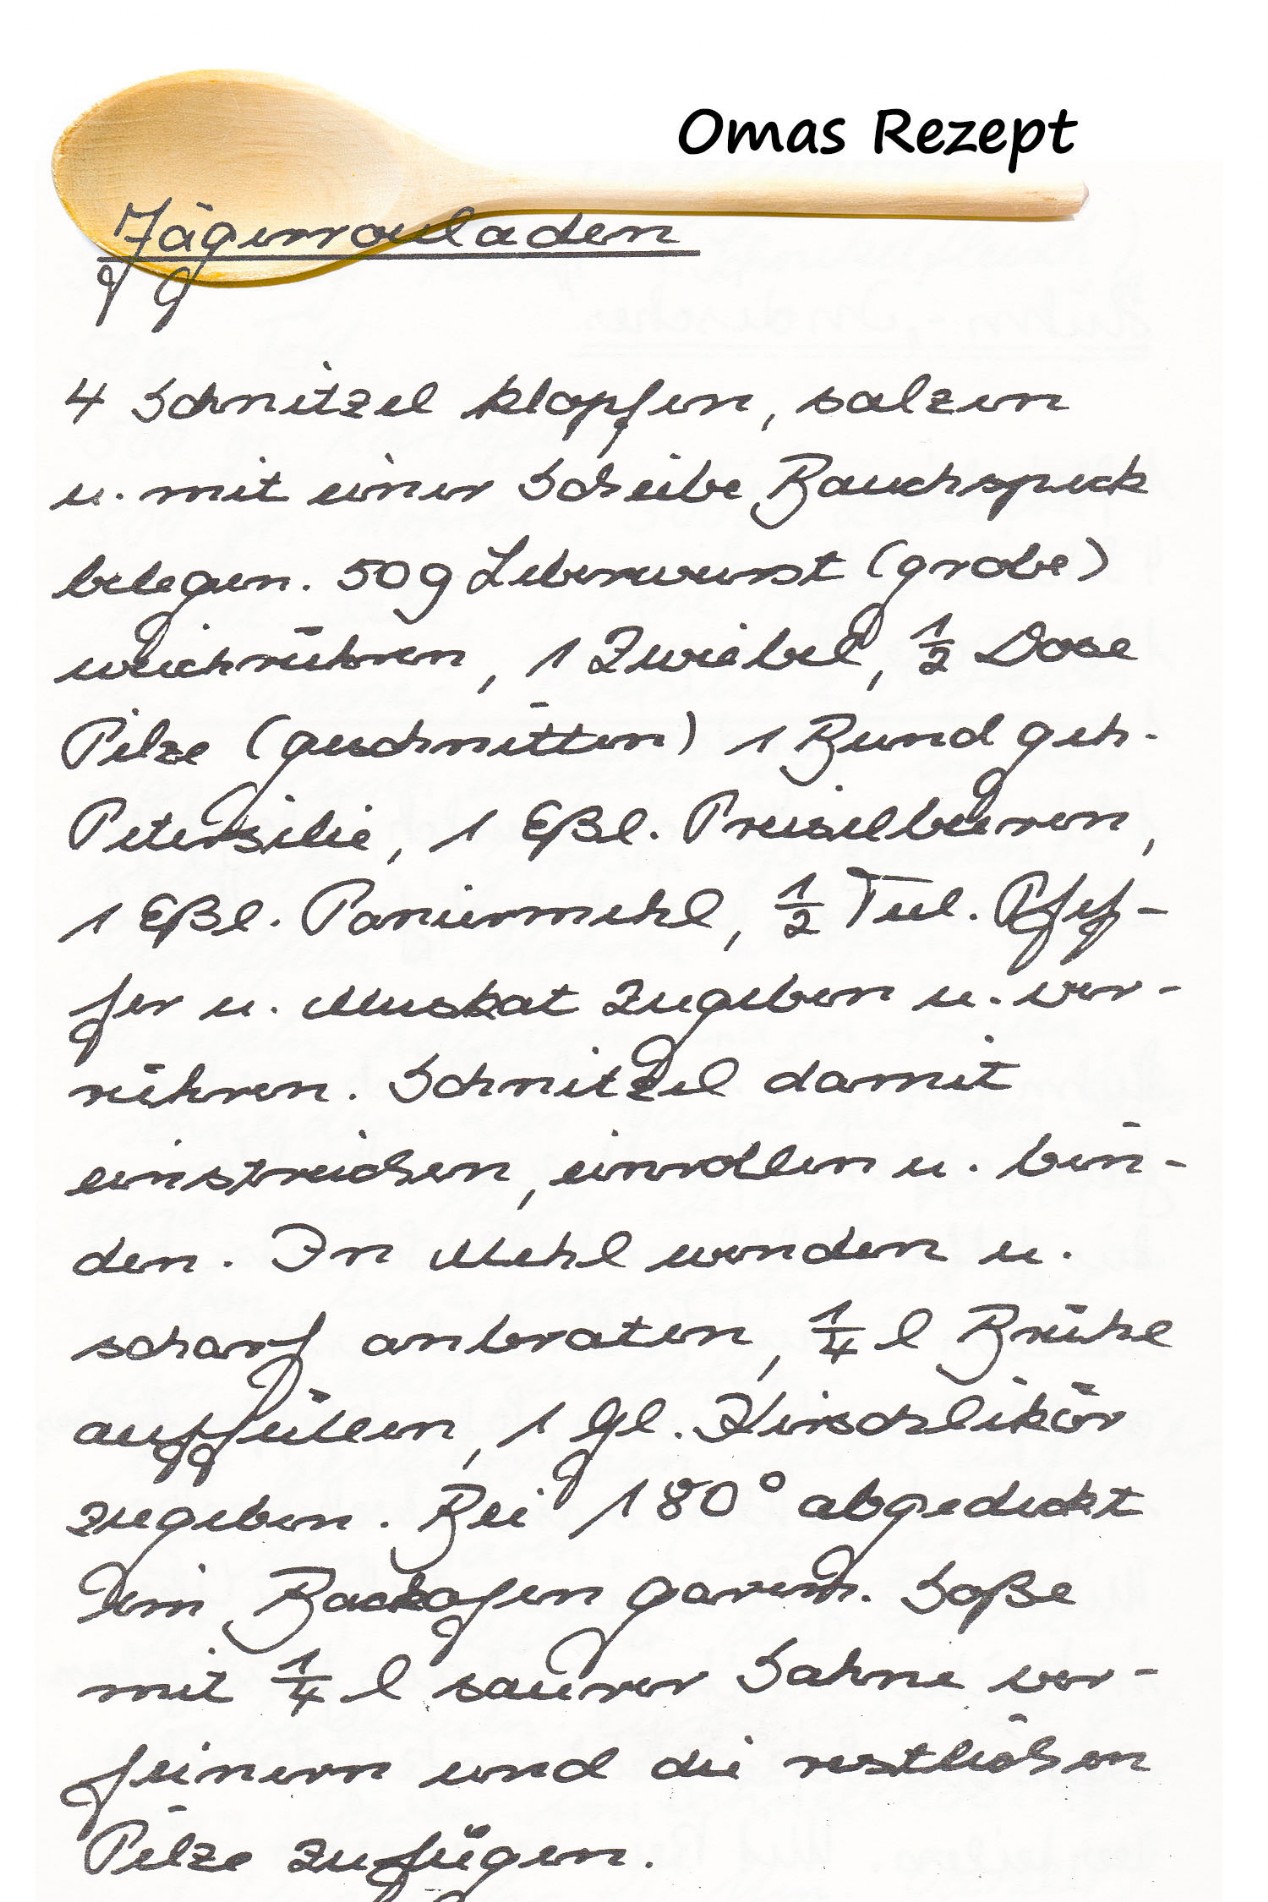 Omas Rezept
Jägerrouladen
4 Schnitzel klopfen, salzen
u. mit einer Scheibe Bauchspeck
belegen. 50g Leberwurst (grobe)
weichrühren, 1 Zwiebel, 1/2 Dose
Pilze (geschnitten) 1 Bund geh.
Petersilie, 1 Eßl. Preiselbeeren,
1 Eßl. Paniermehl, 1/2 Teel. Pfef-
fer u. Muskat zugeben u. ver-
rühren. Schnitzel damit
einstreichen, einrollen u. bin-
den. In Mehl wenden u.
scharf anbraten, 1/4 l Brühe
auffüllen, 1 Gl. Kirschlikör
zugeben. Bei 180° abgedeckt
im Backofen garen. Soße
mit 1/4 l saurer Sahne ver-
feinern und die restlichen
Pilze zufügen.